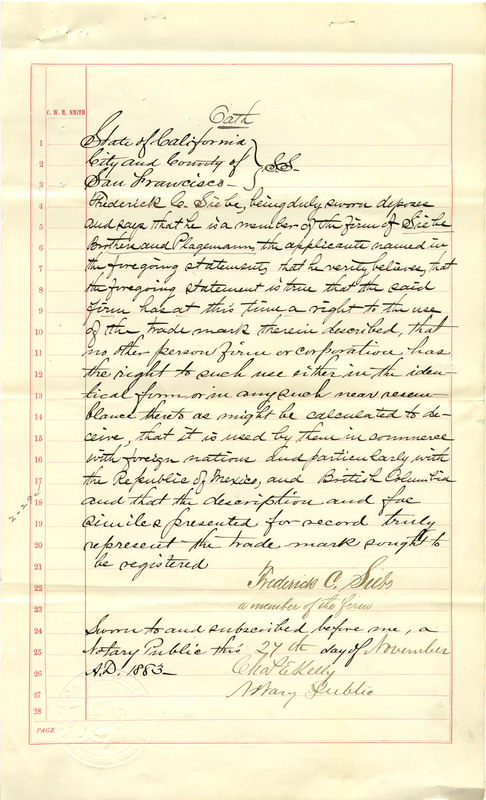 Oath
C. W. M. SMITH
1 State of California
2 City and County of } S.S.
3 San Francisco
4 Frederick C. Siebe, being duly sworn deposes
5 and says that he is a member of the firm of Siebe
6 Brothers and Plagemann, the applicants named in
7 the foregoing statement, that he verily believes, that
8 the foregoing statement is true that the said
9 firm has at this time a right to the use
10 of the trade mark therein described, that
11 no other person firm or corporation, has
12 the right to such use either in the iden-
13 tical form or in any such near resem-
14 blance thereto as might be calculated to de-
15 ceive, that it is used by them in commerce
16 with foreign nations and particularly with
17 the Republic of Mexico, and British Columbia
18 and that the description and fac
19 similes presented for record truly
20 represent the trade mark sought to
21 be registered
22 Frederick C. Siebe
23 a member of the firm
24 Sworn to and subscribed before me, a
25 Notary Public this 27th day of November
26 A.D. 1883— Chas E Kelly
27 Notary Public
28
PAGE
2-20